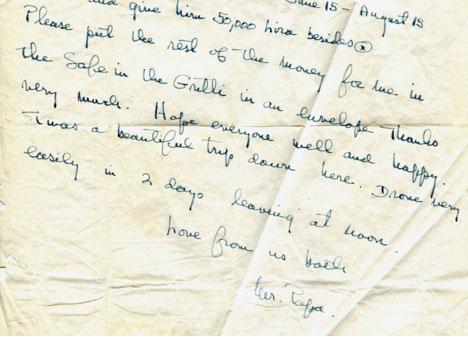 June 15 - August 15
and give him 50,000 lira besides ⓧ
Please put the rest of the money for me in
the Safe in the Gritti in an envelope Thanks
very much. Hope everyone well and happy.
T'was a beautiful trip down here. Drove very
easily in 2 days leaving at noon.
Love from us both
Mr. Papa.